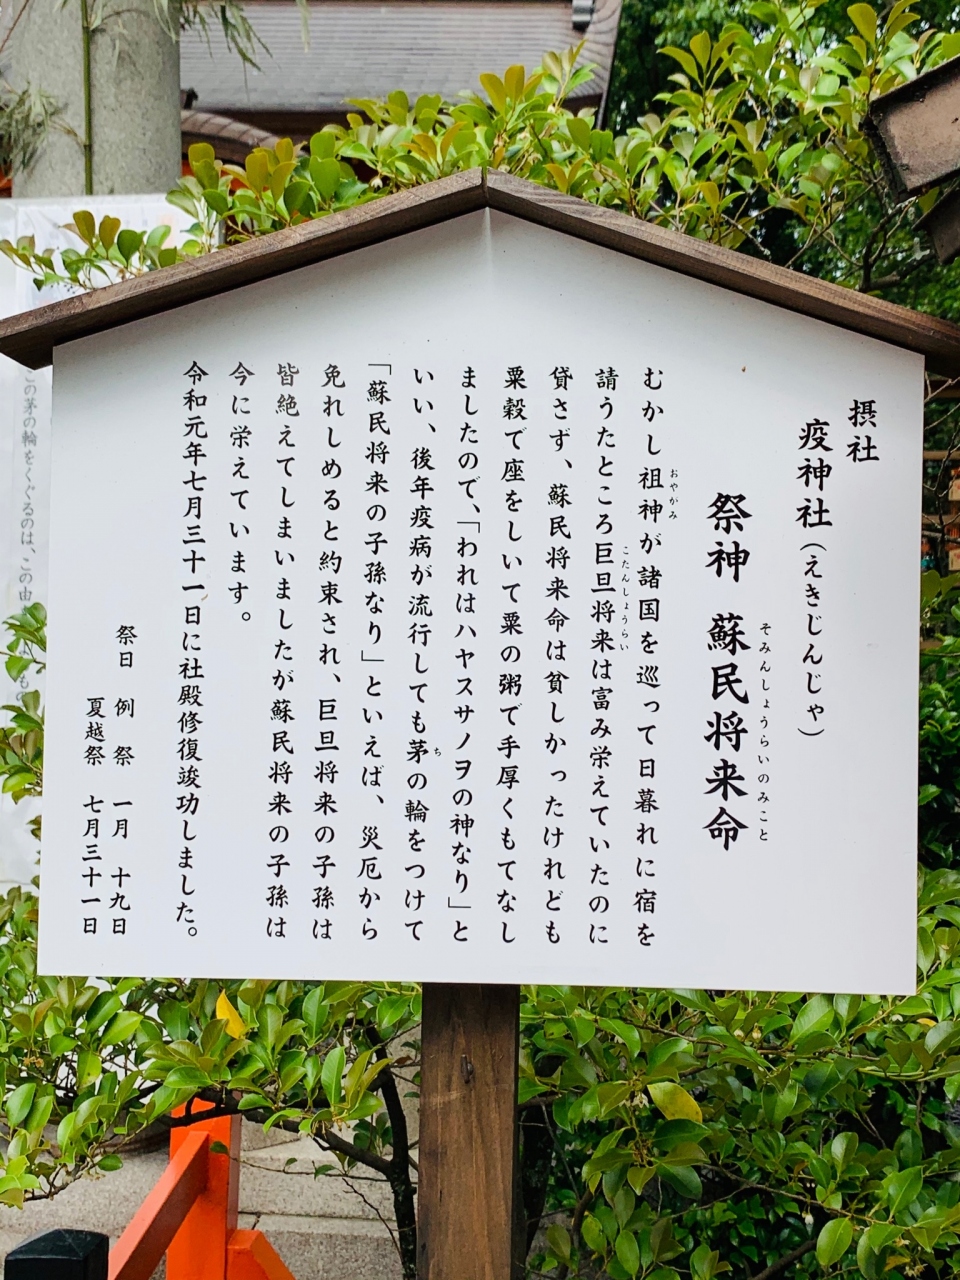 摂社
疫神社（えきじんじゃ）
祭神 蘇民将来命
そみんしょうらいのみこと
むかし祖神が諸国を巡って日暮れに宿を
おやがみ
請うたところ巨旦将来は富み栄えていたのに
こたんしょうらい
貸さず、蘇民将来命は貧しかったけれども
粟穀で座をしいて粟の粥で手厚くもてなし
ましたので、「われはハヤスサノヲの神なり」と
いい、後年疫病が流行しても茅の輪をつけて
ち
「蘇民将来の子孫なり」といえば、災厄から
免れしめると約束され、巨旦将来の子孫は
皆絶えてしまいましたが蘇民将来の子孫は
今に栄えています。
令和元年七月三十一日に社殿修復竣功しました。
祭日 例祭 一月 十九日
夏越祭 七月三十一日
この茅の輪をくぐるのは、この由